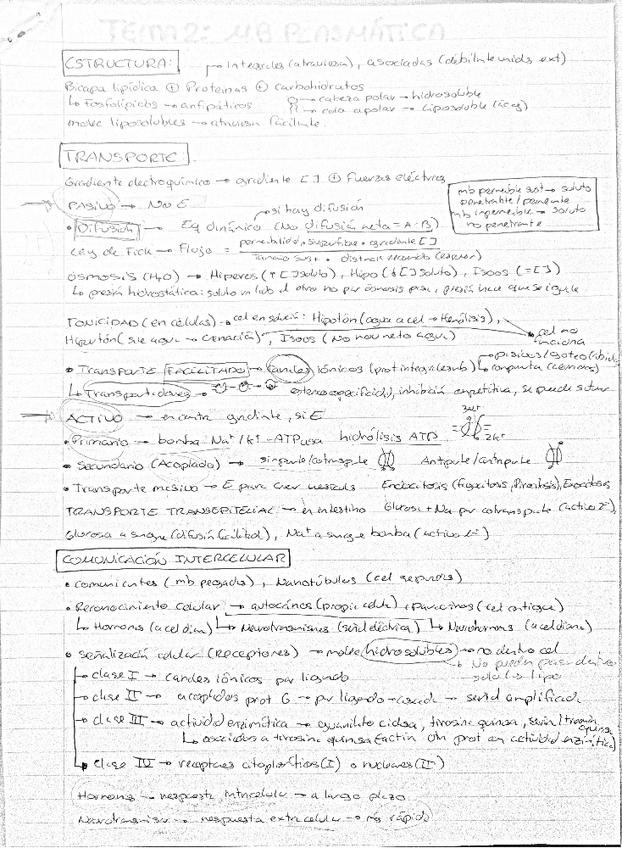 TEMA 2: MB PLASMÁTICA
ESTRUCTURA: → Integrales (atraviesan), asociadas (débilmente unidas, ext)
Bicapa lipídica ⊕ Proteínas ⊕ Carbohidratos
↳ fosfolípidos → anfipáticos → cabeza polar → hidrosoluble
→ cola apolar → liposoluble
molec liposolubles → atraviesan fácilmente.
TRANSPORTE.
Gradiente electroquímico → gradiente [ ] ⊕ Fuerzas eléctricas
mb permeable sust → soluto
penetrable / penetrante
mb impermeable → soluto
no penetrante
PASIVO → No E
si hay difusión
• Difusión → Eq dinámico (No difusión neta = A-B)
Ley de Fick → Flujo = permeabilidad, superficie, gradiente [ ]
tamaño sust • distancia
ÓSMOSIS (H2O) → Hiperos (↑[ ] soluto), Hipo (↓[ ] soluto), Isoos (=[ ])
↳ presión hidrostática: soluto
TONICIDAD (en células) → cel en soluc: Hipotón (agua a cel → Hemólisis),
Hipertón (sale agua → crenación), Isoos (No mov neto agua)
cel no
• Transporte FACILITADO → canales iónicos (prot integrales mb)
compuerta
↳ Transportadores → estereoespecificidad, inhibición competitiva, se puede saturar
ACTIVO → en contra gradiente, si E
3Na+
• Primario → bomba Na+/K+-ATPasa hidrólisis ATP
2K+
• Secundario (Acoplado) → simporte/cotransporte Antiporte/antiporte
• Transporte masivo → E para crear vesículas Endocitosis (fagocitosis, Pinocitosis), Exocitosis
TRANSPORTE TRANSEPITELIAL → en intestino Glucosa + Na por cotransporte (activo 2º),
Glucosa a sangre (difusión facilitad), Na+ a sangre bomba (activo 1º)
COMUNICACIÓN INTERCELULAR
• comunicantes (mb pegadas), Nanotúbulos (cel separadas)
• Reconocimiento celular → autocrinos (propia célula) paracrinos (cel contigua)
↳ Hormonas (a cel dian) ↳ Neurotransmisores (señal eléctrica) ↳ Neurohormonas (a cel diana)
• Señalización celular (Receptores) → molec hidrosolubles → no dentro cel
No pueden pasar dentro
solo las lipo
clase I → canales iónicos por ligando
clase II → acoplados prot G → por ligando → cascada → señal amplificada
clase III → actividad enzimática → guanilato ciclasa, tirosina quinasa, serin/treonin quinasa
↳ asociados a tirosina quinasa
clase IV → receptores citoplasmáticos (I) o nucleares (II)
Hormonas → respuesta intracelular → a largo plazo
Neurotransmisor → respuesta extracelular → más rápido